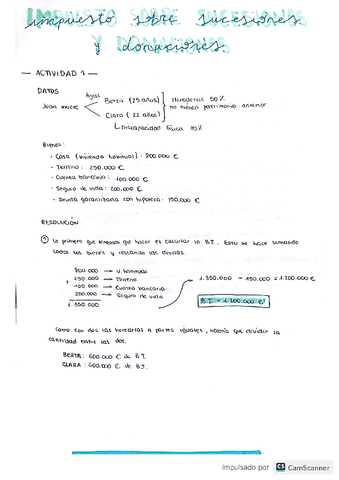 IMPUESTO SOBRE SUCESIONES
Y DONACIONES
impuesto sobre sucesiones
y donaciones
— ACTIVIDAD 1 —
DATOS
Juan muere
Hijas
Berta (25 años)
Clara (22 años)
Herederas 50%
no tienen patrimonio anterior
Discapacidad física
Bienes:
· Casa (vivienda habitual): 800.000 €
· Terreno: 250.000 €
· Cuenta bancaria: 100.000 €
· Seguro de vida: 200.000 €
· Deuda garantizada con hipoteca: 150.000 €
RESOLUCIÓN
① Lo primero que tenemos que hacer es calcular la B.I. Esto se hace sumando
todos los bienes y restando las deudas.
800.000 → V. habitual
+ 250.000 → Terreno
100.000 → Cuenta bancaria
200.000 → Seguro de vida
1.350.000
1.350.000 - 150.000 = 1.200.000 €
B.I = 1.200.000 €
Como son dos las herederas a partes iguales, habría que dividir la
cantidad entre las dos.
BERTA: 600.000 € de B.I.
CLARA: 600.000 € de B.I.
Impulsado por CS CamScanner